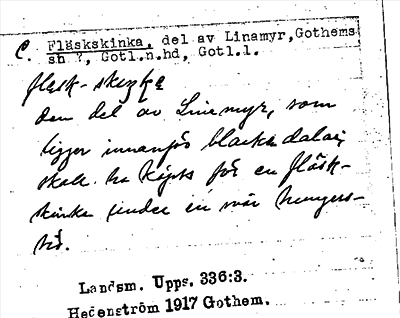 C. Fläskskinka, del av Linamyr, Gothems
sn ?, Gotl.n.hd, Gotl.l.
fläsk-
den del av Linemyr, som
ligger innanför
skall ha köpts för en fläsk-
skinka under en svår hungers-
nöd.
Landsm. Upps. 336:3.
Hedenström 1917 Gothem.